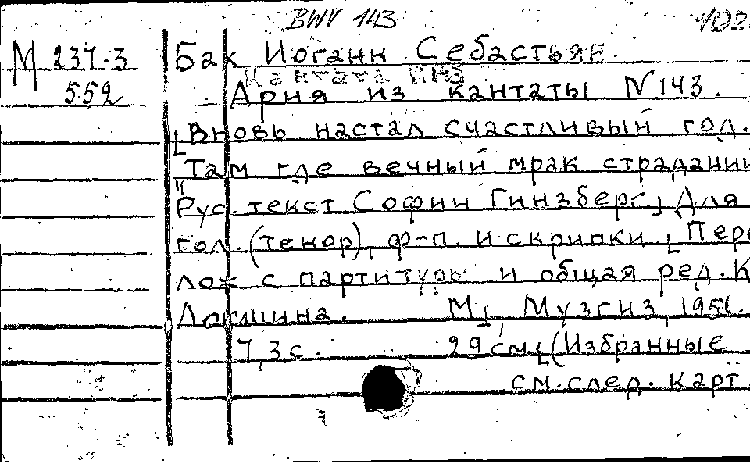 BWV 143
М 237-3
552
Бах Иоганн Себастьян.
Кантата №143
Ария из кантаты N143.
Вновь настал счастливый год.
Там где вечный мрак страдании
Рус. текст Софии Гинзберг, Для
гол. (тенор), ф-п. и скрипки, Пере
лож с партитуры и общая ред. К
Локшина. М., Музгиз, 195
7,3с. 29 см, (Избранные
см. след. карт